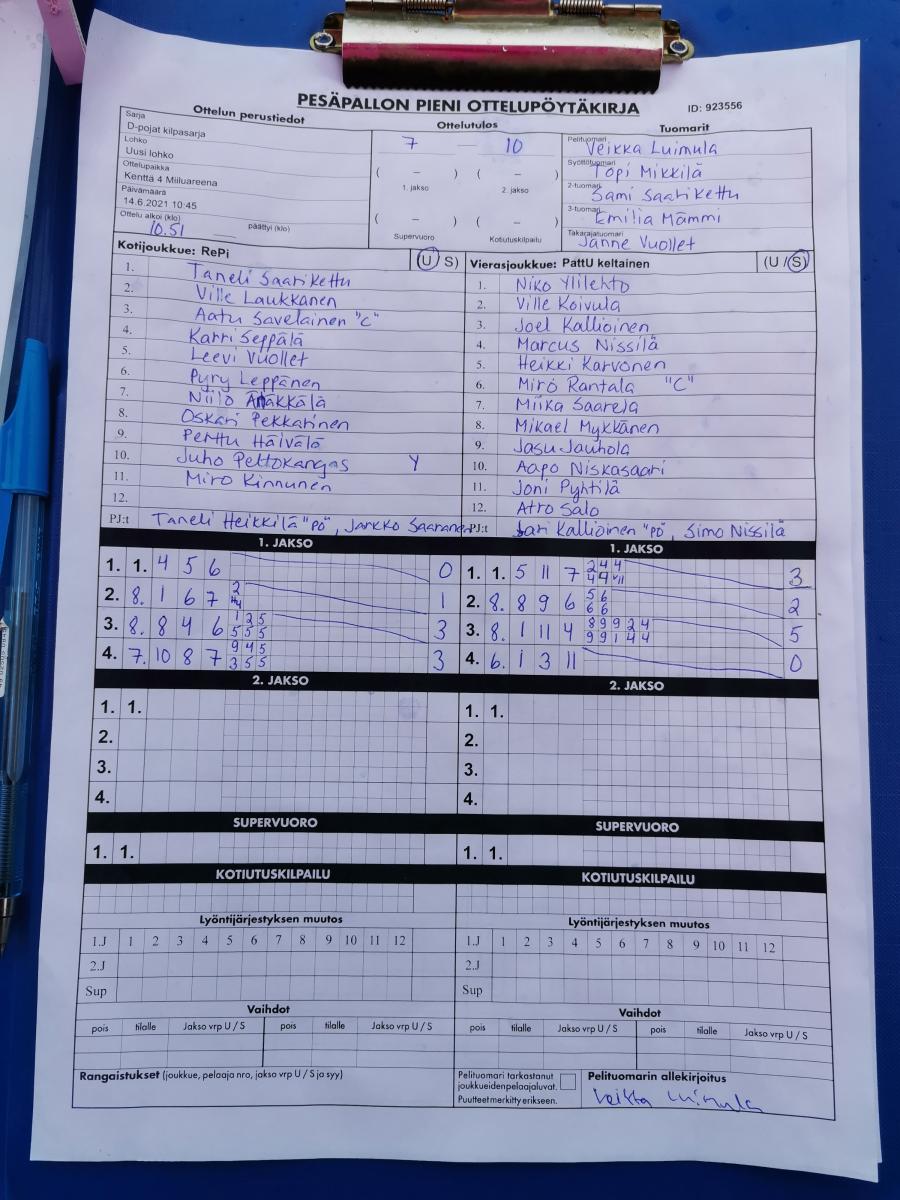 PESÄPALLON PIENI OTTELUPÖYTÄKIRJA
ID: 923556
Ottelun perustiedot
Sarja
D-pojat kilpasarja
Lohko
Uusi lohko
Ottelupaikka
Kenttä 4 Miiluareena
Päivämäärä
14.6.2021 10:45
Ottelu alkoi (klo) 10.51 päättyi (klo)
Ottelutulos
7 — 10
( – ) ( – )
1. jakso 2. jakso
( – ) ( – )
Supervuoro Kotiutuskilpailu
Tuomarit
Pelituomari Veikka Luimula
Syöttötuomari Topi Mikkilä
2-tuomari Sami Saarikettu
3-tuomari Emilia Mämmi
Takarajatuomari Janne Vuollet
Kotijoukkue: RePi (U S)
1. Taneli Saarikettu
2. Ville Laukkanen
3. Aatu Savelainen "C"
4. Karri Seppälä
5. Leevi Vuollet
6. Pyry Leppänen
7. Niilo
8. Oskari Pekkarinen
9. Perttu Häivälä
10. Juho Peltokangas Y
11. Miro Kinnunen
12.
PJ:t Taneli Heikkilä "PÖ", Jarkko Saaranen
Vierasjoukkue: PattU keltainen (U / S)
1. Niko Ylilehto
2. Ville Koivula
3. Joel Kallioinen
4. Marcus Nissilä
5. Heikki Karvonen
6. Miro Rantala "C"
7. Miika Saarela
8. Mikael Mykkänen
9. Jasu Jauhola
10. Aapo Niskasaari
11. Joni Pyhtilä
12. Atro Salo
PJ:t Jari Kallioinen "PÖ", Simo Nissilä
1. JAKSO
1. 1. 4 5 6 0
2. 8. 1 6 7 1
3. 8. 8 4 6 1 2 5 3
5 5 5
4. 7. 10 8 7 9 4 5 3
3 5 5
1. JAKSO
1. 1. 5 11 7 2 4 4 3
2. 8. 8 9 6 5 6 2
6 6
3. 8. 1 11 4 8 9 9 2 4 5
9 9 1 4 4
4. 6. 1 3 11 0
2. JAKSO
1. 1.
2.
3.
4.
2. JAKSO
1. 1.
2.
3.
4.
SUPERVUORO
1. 1.
SUPERVUORO
1. 1.
KOTIUTUSKILPAILU
KOTIUTUSKILPAILU
Lyöntijärjestyksen muutos
1.J 1 2 3 4 5 6 7 8 9 10 11 12
2.J
Sup
Lyöntijärjestyksen muutos
1.J 1 2 3 4 5 6 7 8 9 10 11 12
2.J
Sup
Vaihdot
pois tilalle Jakso vrp U / S pois tilalle Jakso vrp U / S
Vaihdot
pois tilalle Jakso vrp U / S pois tilalle Jakso vrp U / S
Rangaistukset (joukkue, pelaaja nro, jakso vrp U / S ja syy)
Pelituomari tarkastanut
joukkueidenpelaajaluvat.
Puutteet merkitty erikseen.
Pelituomarin allekirjoitus
Veikka Luimula